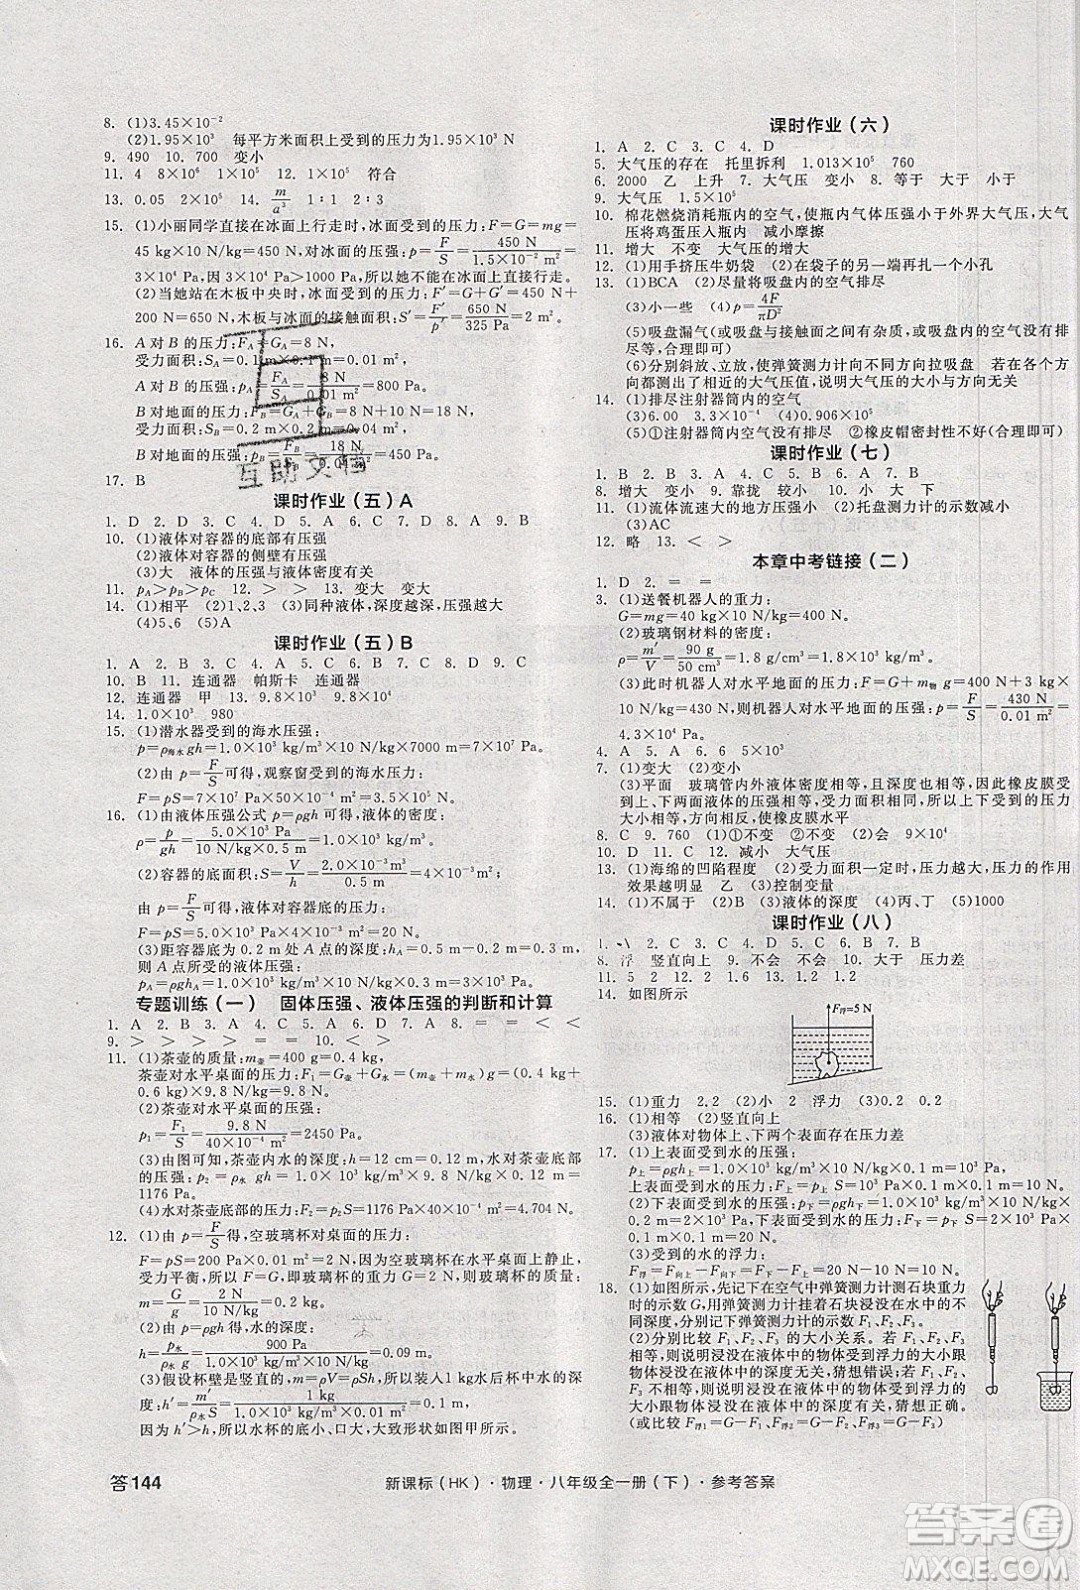 8. (1)3.45×10⁻²
(2)1.95×10³ 每平方米面积上受到的压力为1.95×10³ N
9. 490 10. 700 变小
11. 4 8×10⁶ 1×10⁵ 12. 1×10⁵ 符合
13. 0.05 2×10⁵ 14. m/a³ 1∶1 2∶3
15. (1)小丽同学直接在冰面上行走时,冰面受到的压力F=G=mg=
45 kg×10 N/kg=450 N,对冰面的压强:p=F/S=450 N/1.5×10⁻² m²=
3×10⁴ Pa,因3×10⁴ Pa>1000 Pa,所以她不能在冰面上直接行走。
(2)当她站在木板中央时,冰面受到的压力:F′=G+G′=450 N+
200 N=650 N,木板与冰面的接触面积:S′=F′/p′=650 N/325 Pa=2 m²。
16. A对B的压力:F_A=G_A=8 N,
受力面积:S_A=0.1 m×0.1 m=0.01 m²,
A对B的压强:p_A=F_A/S_A=8 N/0.01 m²=800 Pa。
B对地面的压力:F_B=G_A+G_B=8 N+10 N=18 N,
受力面积:S_B=0.2 m×0.2 m=0.04 m²,
B对地面的压强:p_B=F_B/S_B=18 N/0.04 m²=450 Pa。
17. B
课时作业(五)A
1. D 2. D 3. C 4. D 5. C 6. D 7. A 8. D 9. B
10. (1)液体对容器的底部有压强
(2)液体对容器的侧壁有压强
(3)大 液体的压强与液体密度有关
11. p_A>p_B>p_C 12. > > 13. 变大 变大
14. (1)相平 (2)1、2、3 (3)同种液体,深度越深,压强越大
(4)5、6 (5)A
课时作业(五)B
1. A 2. B 3. C 4. B 5. D 6. C 7. D 8. B 9. C
10. B 11. 连通器 帕斯卡 连通器
12. 连通器 甲 13. 9.8×10³ 9.8×10⁴
14. 1.0×10³ 980
15. (1)潜水器受到的海水压强:
p=ρ海水gh=1.0×10³ kg/m³×10 N/kg×7000 m=7×10⁷ Pa。
(2)由p=F/S可得,观察窗受到的海水压力:
F=pS=7×10⁷ Pa×0.03 m²=2.1×10⁶ N。
16. (1)由液体压强公式p=ρgh可得,液体的密度:
ρ=p/gh=5.0×10³ Pa/10 N/kg×0.5 m=1.0×10³ kg/m³。
(2)容器的底面积:S=V/h=2.0×10⁻³ m³/0.5 m=4×10⁻³ m²,
由p=F/S可得,液体对容器底的压力:
F=pS=5.0×10³ Pa×4×10⁻³ m²=20 N。
(3)距容器底为0.2 m处A点的深度:h_A=0.5 m-0.2 m=0.3 m,
则A点所受的液体压强:
p_A=ρgh_A=1.0×10³ kg/m³×10 N/kg×0.3 m=3×10³ Pa。
专题训练(一) 固体压强、液体压强的判断和计算
1. A 2. B 3. C 4. A 5. A 6. D 7. A 8. = = < <
9. > > > = = 10. < >
11. (1)茶壶的质量:m壶=400 g=0.4 kg,
茶壶对水平桌面的压力:F₁=G壶+G水=(m壶+m水)g=(0.4 kg+
0.6 kg)×9.8 N/kg=9.8 N。
(2)茶壶对水平桌面的压强:
p₁=F₁/S=9.8 N/40×10⁻⁴ m²=2450 Pa。
(3)由图可知,茶壶内水的深度:h=12 cm=0.12 m,水对茶壶底部
的压强:p₂=ρ水gh=1.0×10³ kg/m³×9.8 N/kg×0.12 m=
1176 Pa。
(4)水对茶壶底部的压力:F₂=p₂S=1176 Pa×40×10⁻⁴ m²=4.704 N。
12. (1)由p=F/S得,空玻璃杯对桌面的压力:
F=pS=200 Pa×0.01 m²=2 N,因空玻璃杯在水平桌面上静止,
受力平衡,所以G=F,即玻璃杯的重力G=F=2 N,玻璃杯的质量:
m=G/g=2 N/10 N/kg=0.2 kg。
(2)由p=ρgh得,水的深度:
h=p水/ρ水g=900 Pa/1.0×10³ kg/m³×10 N/kg=0.09 m。
(3)假设杯壁是竖直的,由m=ρV=ρSh,装入1 kg水后杯中水的深
度:h′=m/ρ水S=1 kg/1.0×10³ kg/m³×0.01 m²=0.1 m,
因为h′>h,所以水杯的底小、口大,大致图形如图所示。
课时作业(六)
1. A 2. D 3. C 4. D
5. 大气压的存在 托里拆利 1.013×10⁵ 760
6. 2000 乙 上升 7. 大气压 变小 8. 等于 大于 小于
9. 大气压 1.5×10⁵
10. 棉花燃烧消耗瓶内的空气,使瓶内气体压强小于外界大气压,大
气压将鸡蛋压入瓶内 减小摩擦
11. 增大 不变 大气压的增大
12. (1)用手挤压牛奶袋 (2)在袋子的另一端再扎一个小孔
13. (1)BCA (2)尽量将吸盘内的空气排尽
(3)小一些 (4)p=4F/πD²
(5)吸盘漏气(或吸盘与接触面之间有杂质,或吸盘内的空气没有排
尽等,合理即可)
(6)分别斜放、立放,使弹簧测力计向不同方向拉吸盘 如果不同方
向都测出了相同的大气压值,说明大气压的大小与方向无关
14. (1)排尽注射器筒内的空气
(3)6.00 3.3×10⁻⁴ (4)0.906×10⁵
(5)①注射器筒内空气没有排尽 ②橡皮帽密封性不好(合理即可)
课时作业(七)
1. B 2. B 3. C 4. B 5. C 6. A 7. B
8. 增大 不变 9. 靠拢 较小 10. 小 大 下
11. (1)流体流速大的地方压强小 (2)托盘测力计的示数减小
(3)AC
12. 略 13. < >
本章中考链接(二)
1. D 2. = =
3. (1)送餐机器人的重力:
G=mg=40 kg×10 N/kg=400 N。
(2)玻璃钢材料的密度:
ρ=m′/V=90 g/50 cm³=1.8 g/cm³=1.8×10³ kg/m³。
(3)此时机器人对水平地面的压力:F=G+m物g=400 N+3 kg×
10 N/kg=430 N,则机器人对水平地面的压强:p=F/S=430 N/0.01 m²=
4.3×10⁴ Pa。
4. A 5. A 6. 6 5×10³
7. (1)变大 (2)变小
(3)平面 玻璃管内外液体密度相等,且深度也相等,因此橡皮膜受
到上、下两面液体的压强相等,受力面积相同,所以受到上、下的压力
大小相等,方向相反,故橡皮膜水平
8. C 9. 760 (1)①不变 ②不变 (2)会 (3)900
10. D 11. C 12. 减小 大气压
13. (1)海绵的凹陷程度 (2)受力面积一定时,压力越大,压力的作用
效果越明显 乙 (3)控制变量
14. (1)不属于 (2)B (3)液体的深度 (4)丙、丁 (5)1000
课时作业(八)
2. C 3. C 4. B 5. A 6. B 7. B
8. 浮 竖直向上 9. 不会 不会 10. 压力差
11. 5 2 12. 1.2 1.2 13. 5 2
14. 如图所示
F浮=5 N
15. (1)重力 (2)小 2 浮力 (3)0.2 0.2
16. (1)相等 (2)竖直向上
(3)液体对物体上、下两个表面存在压力差
17. (1)上表面受到水的压强:
p上=ρgh上=1.0×10³ kg/m³×10 N/kg×0.1 m=1×10³ Pa,
上表面受到水的压力:F向下=p上S=1×10³ Pa×0.1 m×0.1 m=10 N。
(2)下表面受到水的压强:p下=ρgh下=1.0×10³ kg/m³×10 N/kg×
0.2 m=2×10³ Pa,下表面受到水的压力:F向上=p下S=2×10³ Pa×
0.1 m×0.1 m=20 N。
(3)受到的水的浮力:
F浮=F向上-F向下=20 N-10 N=10 N。
18. (1)如图所示,先记下在空气中弹簧测力计测石块重力
时的示数G,用弹簧测力计挂着石块浸没在水中的不
同深度,分别记下弹簧测力计的示数F₁、F₂、F₃。
(2)分别比较F₁、F₂、F₃的大小关系。若F₁、F₂、F₃相
等,则说明浸没在液体中的物体受到浮力的大小跟
物体浸没在液体中的深度无关,猜想错误;若F₁、F₂、F₃
不相等,则说明浸没在液体中的物体受到浮力的
大小跟物体浸没在液体中的深度有关,猜想正确。
(或分别比较F浮1=G-F₁、F浮2=G-F₂、F浮3=G-F₃)
答144
新课标(HK)·物理·八年级全一册(下)·参考答案
互助文档
答案圈
MXQE.COM